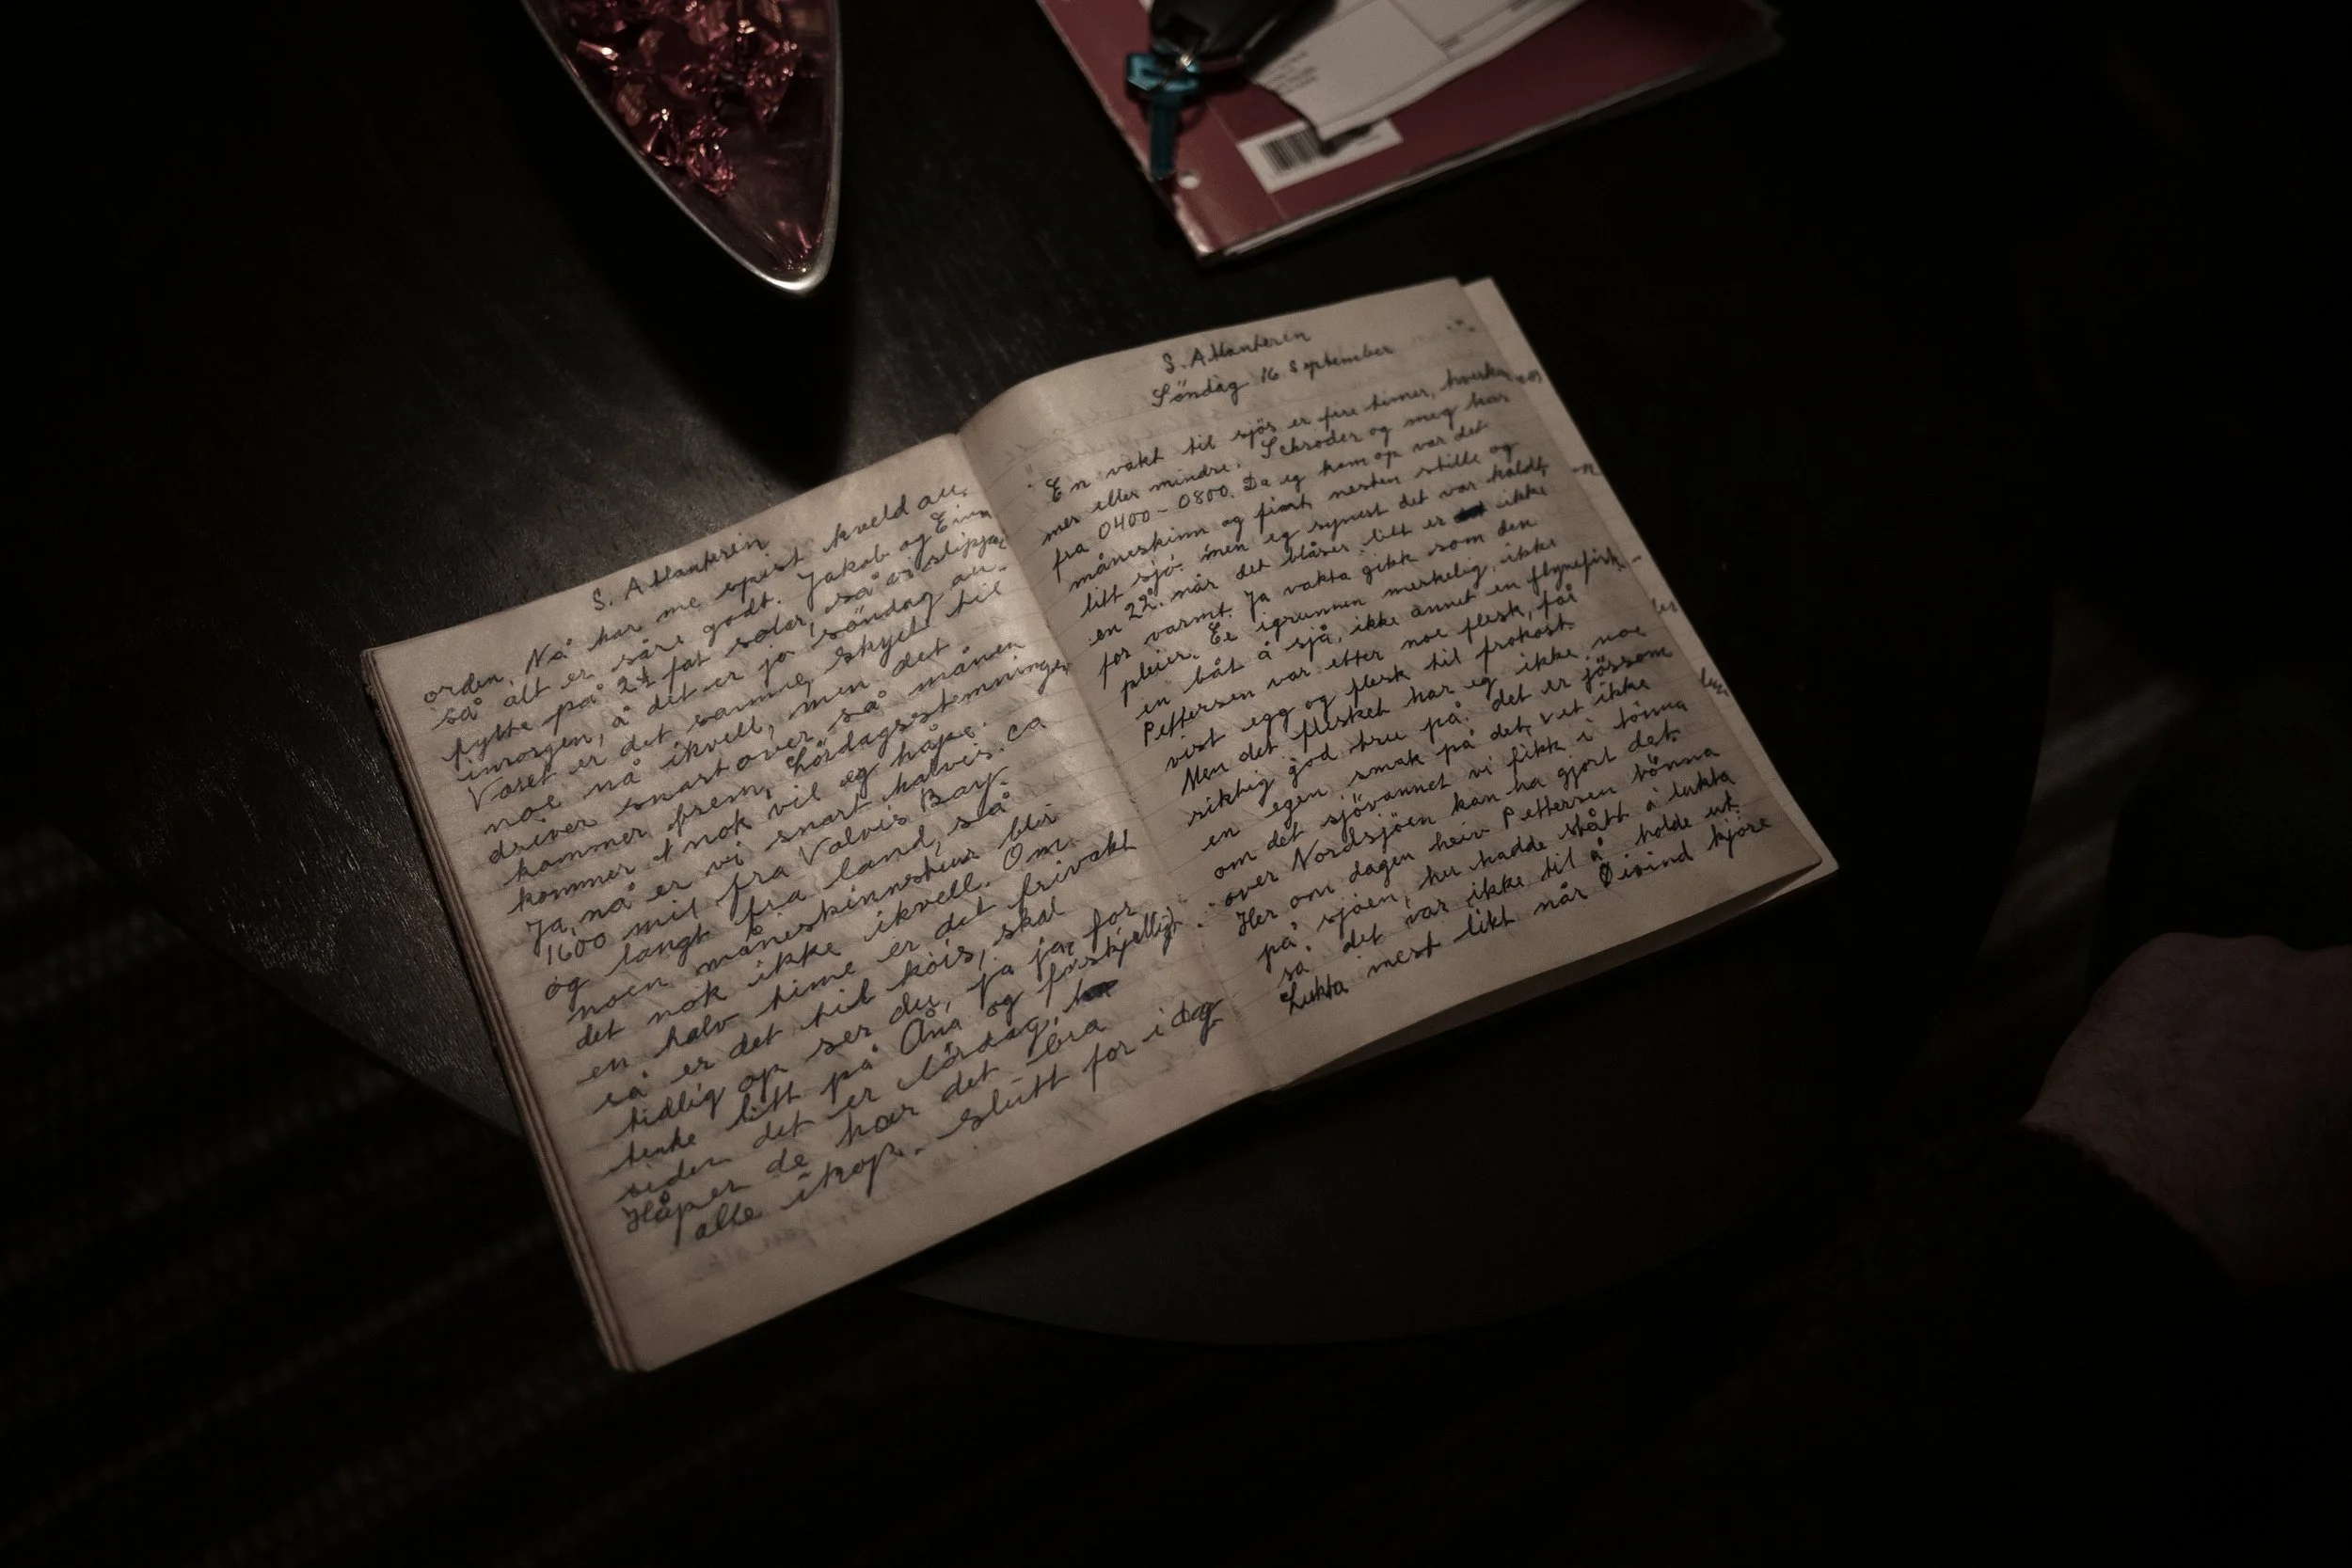 S. Atlanteren
orden. Nå har me spist kveld au,
så alt er såre godt. Jakob og Einar
fylte på 2½ fat solar, så er slippar
imorgen, å det er jo söndag au.
Været er det samme, skyet til
noe nå ikvell, men det
driver snart over så månen
kommer frem, Lördagsstemningen
kommer nok vil eg håpe.
Ja nå er vi snart halvis ca
1600 mil fra Valvis Bay.
og langt fra land, så
noen måneskinnstur blir
det nok ikke ikvell. Om
en halv time er det frivakt
så er det til köis, skal
tidlig op ser du, ja ja, for
tenke litt på Åna og forskjellig
siden det er lördag,
Håper de har det bra
alle ihop. Slutt for idag
S. Atlanteren
Söndag 16 September
En vakt til sjös er fire timer, hverken
mer eller mindre. Schroder og meg har
fra 0400 - 0800. Da eg kom op var det
måneskinn og fint, nesten stille og
litt sjö. men eg synest det var kaldt,
en 22° når det blåser litt er ikke
for varmt. Ja vakta gikk som den
pleier. Er igrunnen merkelig, ikke
en båt å sjå, ikke annet en flyvefisk
Pettersen var etter noe flesk, får
visst egg og flesk til frokost.
Men det flesket har eg ikke noe
riktig god tru på. det er jössom
en egen smak på det, vet ikke
om det sjövannet vi fikk i tönna
over Nordsjöen kan ha gjort det.
Her om dagen heiv Pettersen tönna
på sjöen, hu hadde stått å lukta
så det var ikke til å holde ut.
Lukta mest likt når Øivind kjöre